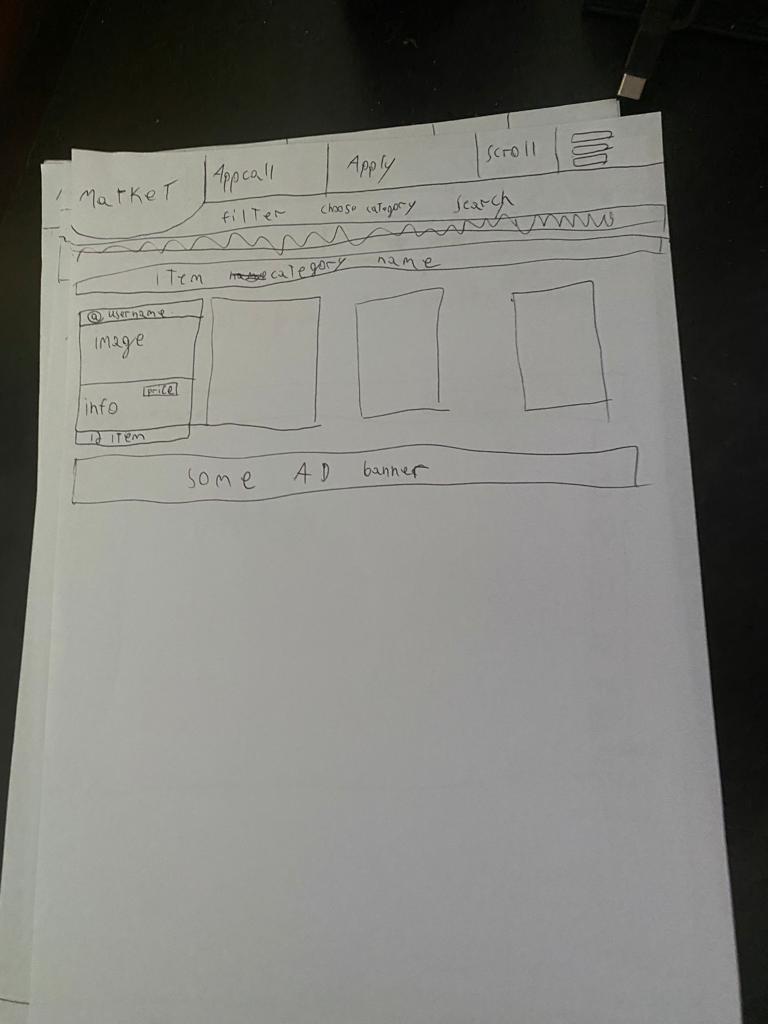 Market Appcall Apply scroll
filter choose category search
item category name
@ username
image
price
info
id item
some AD banner